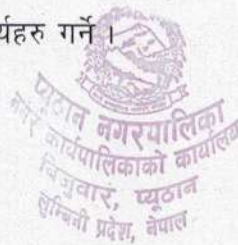 र्यहरु गर्ने ।
प्यूठान नगरपालिका
नगर कार्यपालिकाको कार्यालय
बिजुवार, प्यूठान
लुम्बिनी प्रदेश, नेपाल